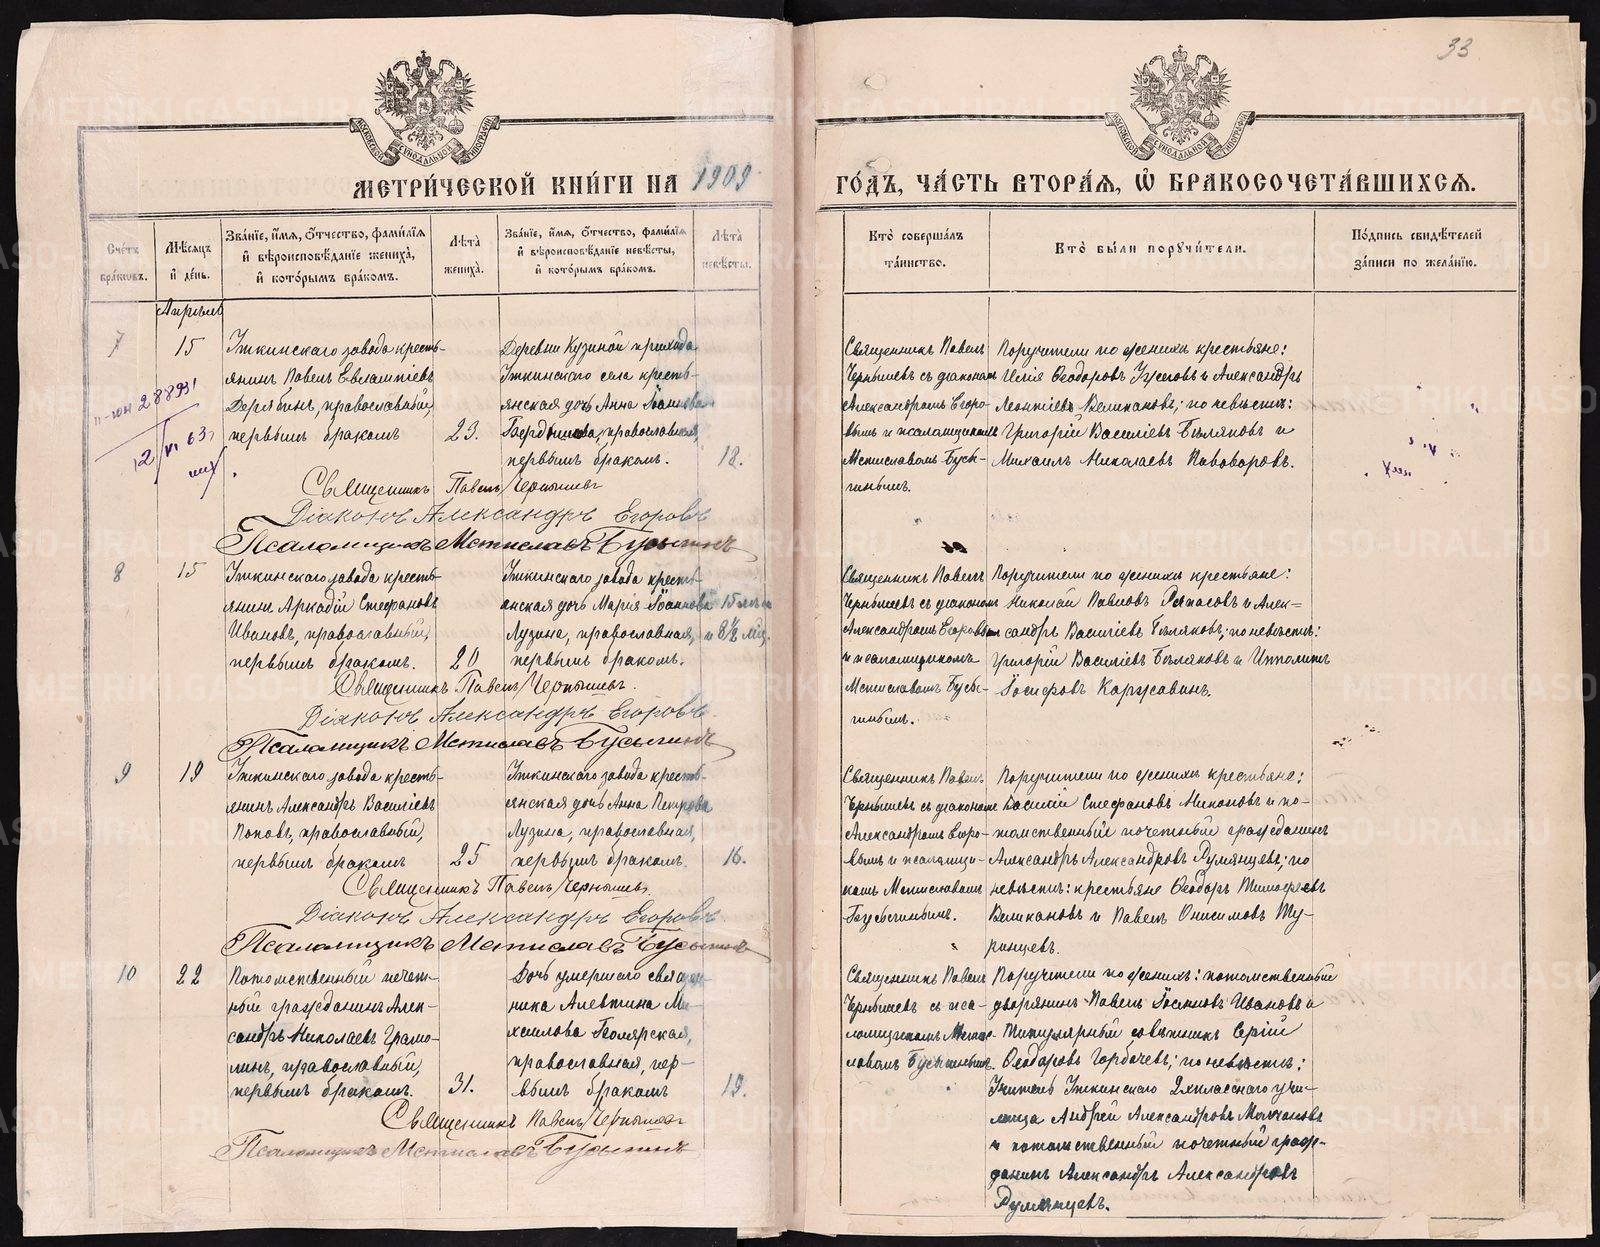 33
МЕТРИ́ЧЕСКОЙ КНИ́ГИ НА 1909
ГО́ДЪ, ЧА́СТЬ ВТОРА́Я, Ѡ҆ БРАКОСОЧЕТА́ВШИХСЯ.
Сче́тъ бра́ковъ.
Мѣ́сяцъ и҆ де́нь.
Зва́нїе, и҆́мя, ѻ҆́тчество, фами́лїя и҆ вѣроисповѣ́данїе жениха̀, и҆ кото́рымъ бра́комъ.
Лѣ́та жениха̀.
Зва́нїе, и҆́мя, ѻ҆́тчество, фами́лїя и҆ вѣроисповѣ́данїе невѣ́сты, и҆ кото́рымъ бра́комъ.
Лѣ́та невѣ́сты.
Кто̀ соверша́лъ та́инство.
Кто̀ бы́ли поручи́тели.
По́дпись свидѣ́телей за́писи по жела́нїю.
Апрѣль
7
15
Уткинскаго завода кресть-
янинъ Павелъ Евлампіевъ
Дерябинъ, православный,
первымъ бракомъ
23.
Деревни Кузиной прихода
Уткинскаго села кресть-
янская дочь Анна Іоаннова
православная,
первымъ бракомъ.
18.
Священникъ Павелъ
Чернышевъ съ діакономъ
Александромъ Егоро-
вымъ и псаломщикомъ
Мстиславомъ Бусы-
гинымъ.
Поручители по женихѣ крестьяне:
Илія Ѳеодоровъ и Александръ
Леонтіевъ Великановъ; по невѣстѣ:
Григорій Василіевъ Бѣляковъ и
Михаилъ Николаевъ Пивоваровъ.
288931
12/VI 63
Священникъ Павелъ Чернышевъ
Діаконъ Александръ Егоровъ
Псаломщикъ Мстиславъ Бусыгинъ
8
15
Уткинскаго завода кресть-
янинъ Аркадій Стефановъ
Ивановъ, православный,
первымъ бракомъ.
20
Уткинскаго завода кресть-
янская дочь Марія Іоаннова
Лузина, православная,
первымъ бракомъ.
15 лѣтъ
и 8½ мѣс.
Священникъ Павелъ
Чернышевъ съ діакономъ
Александромъ Егоровымъ
и псаломщикомъ
Мстиславомъ Бусы-
гинымъ.
Поручители по женихѣ крестьяне:
Николай Павловъ и Алек-
сандръ Василіевъ Бѣляковъ; по невѣстѣ:
Григорій Василіевъ Бѣляковъ и Ипполитъ
Іосифовъ Каржавинъ.
Священникъ Павелъ Чернышевъ.
Діаконъ Александръ Егоровъ.
Псаломщикъ Мстиславъ Бусыгинъ
9
19
Уткинскаго завода кресть-
янинъ Александръ Василіевъ
Поповъ, православный,
первымъ бракомъ
25
Уткинскаго завода кресть-
янская дочь Анна Петрова
Лузина, православная,
первымъ бракомъ.
16.
Священникъ Павелъ
Чернышевъ съ діакономъ
Александромъ Егоро-
вымъ и псаломщи-
комъ Мстиславомъ
Бусыгинымъ.
Поручители по женихѣ крестьяне:
Василій Стефановъ Миконовъ и по-
томственный почетный гражданинъ
Александръ Александровъ Румянцевъ; по
невѣстѣ: крестьяне Ѳеодоръ Тимоѳеевъ
Великановъ и Павелъ Онисимовъ Ту-
ринцевъ.
Священникъ Павелъ Чернышевъ.
Діаконъ Александръ Егоровъ.
Псаломщикъ Мстиславъ Бусыгинъ
10
22
Потомственный почет-
ный гражданинъ Алек-
сандръ Николаевъ Грамо-
линъ, православный,
первымъ бракомъ.
31.
Дочь умершаго священ-
ника Алевтина Ми-
хаилова Боярская,
православная, пер-
вымъ бракомъ
19.
Священникъ Павелъ
Чернышевъ съ пса-
ломщикомъ Мстис-
лавомъ Бусыгинымъ.
Поручители по женихѣ: потомственный
дворянинъ Павелъ Іоанновъ Ивановъ и
Титулярный совѣтникъ Сергій
Ѳеодоровъ Горбачевъ; по невѣстѣ:
Учитель Уткинскаго 2хкласснаго учи-
лища Андрей Александровъ Молчановъ
и потомственный почетный граж-
данинъ Александръ Александровъ
Румянцевъ.
Священникъ Павелъ Чернышевъ
Псаломщикъ Мстиславъ Бусыгинъ
METRIKI.GASO-URAL.RU